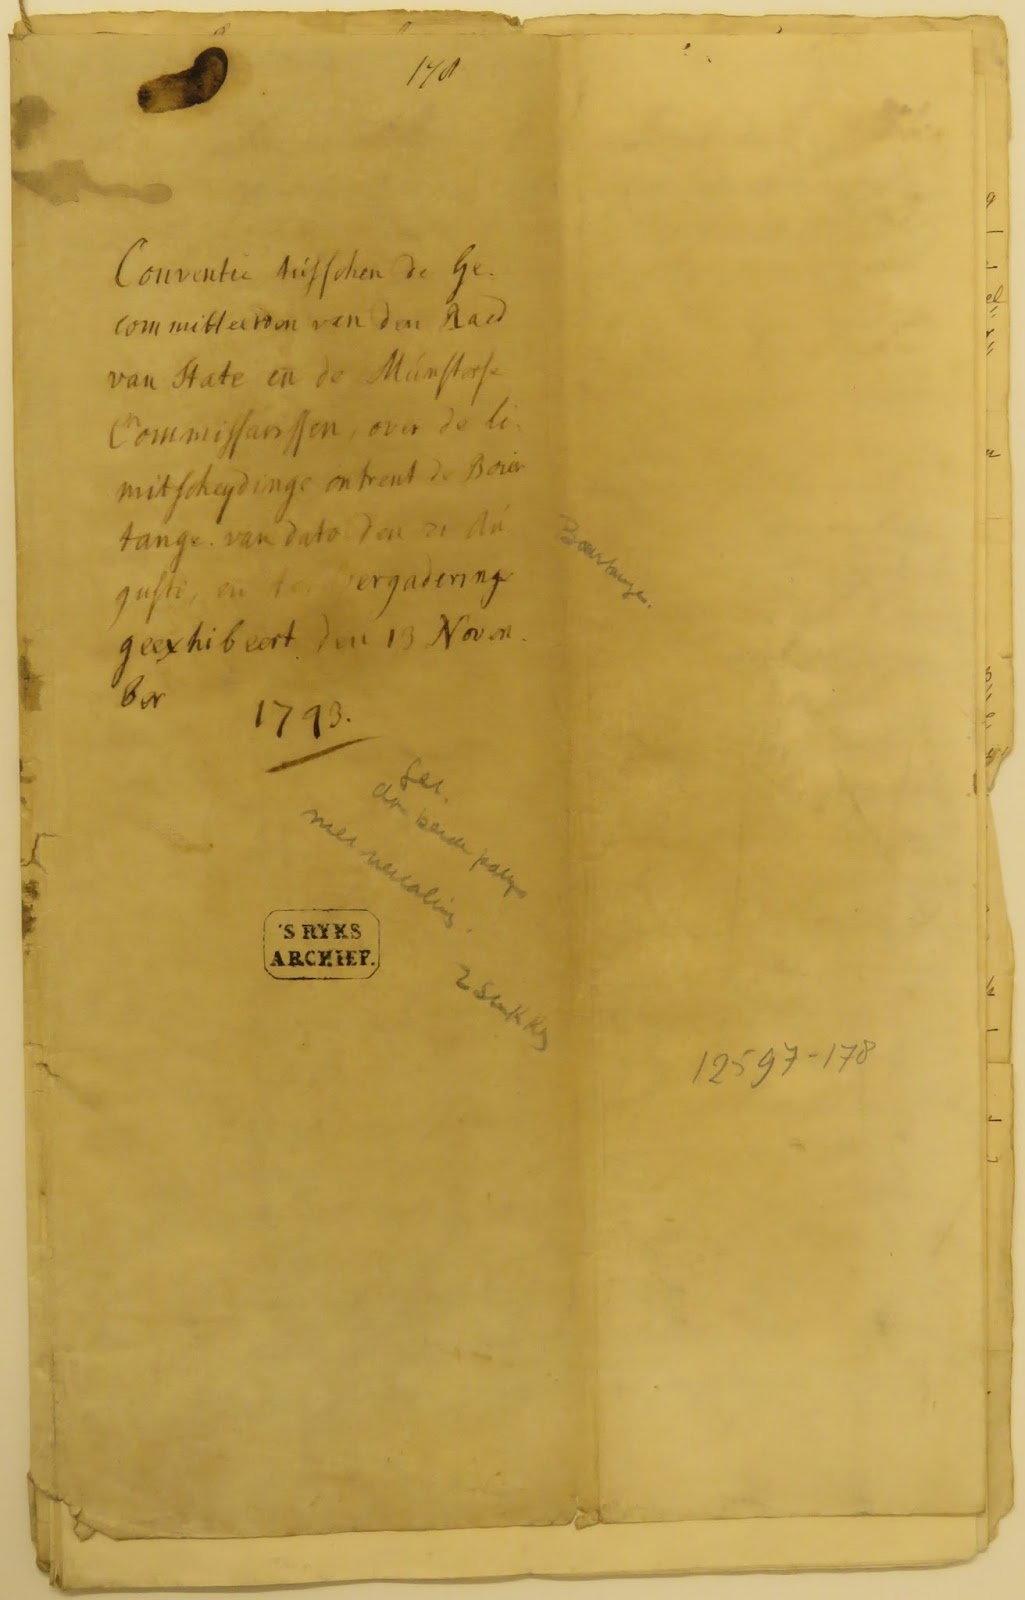 178
Conventie tusschen de Ge-
committeerden van den Raed
van State en de Munsterse
Commissarissen, over de li-
mitscheydinge ontrent de Boer
tange. van dato den 21 Au
gusti, en ter vergadering
geexhibeert den 13 Novem-
ber
1793.
Boertange.
Get.
dr beide partyen
2 Stukken
'S RYKS
ARCHIEF.
12597-178